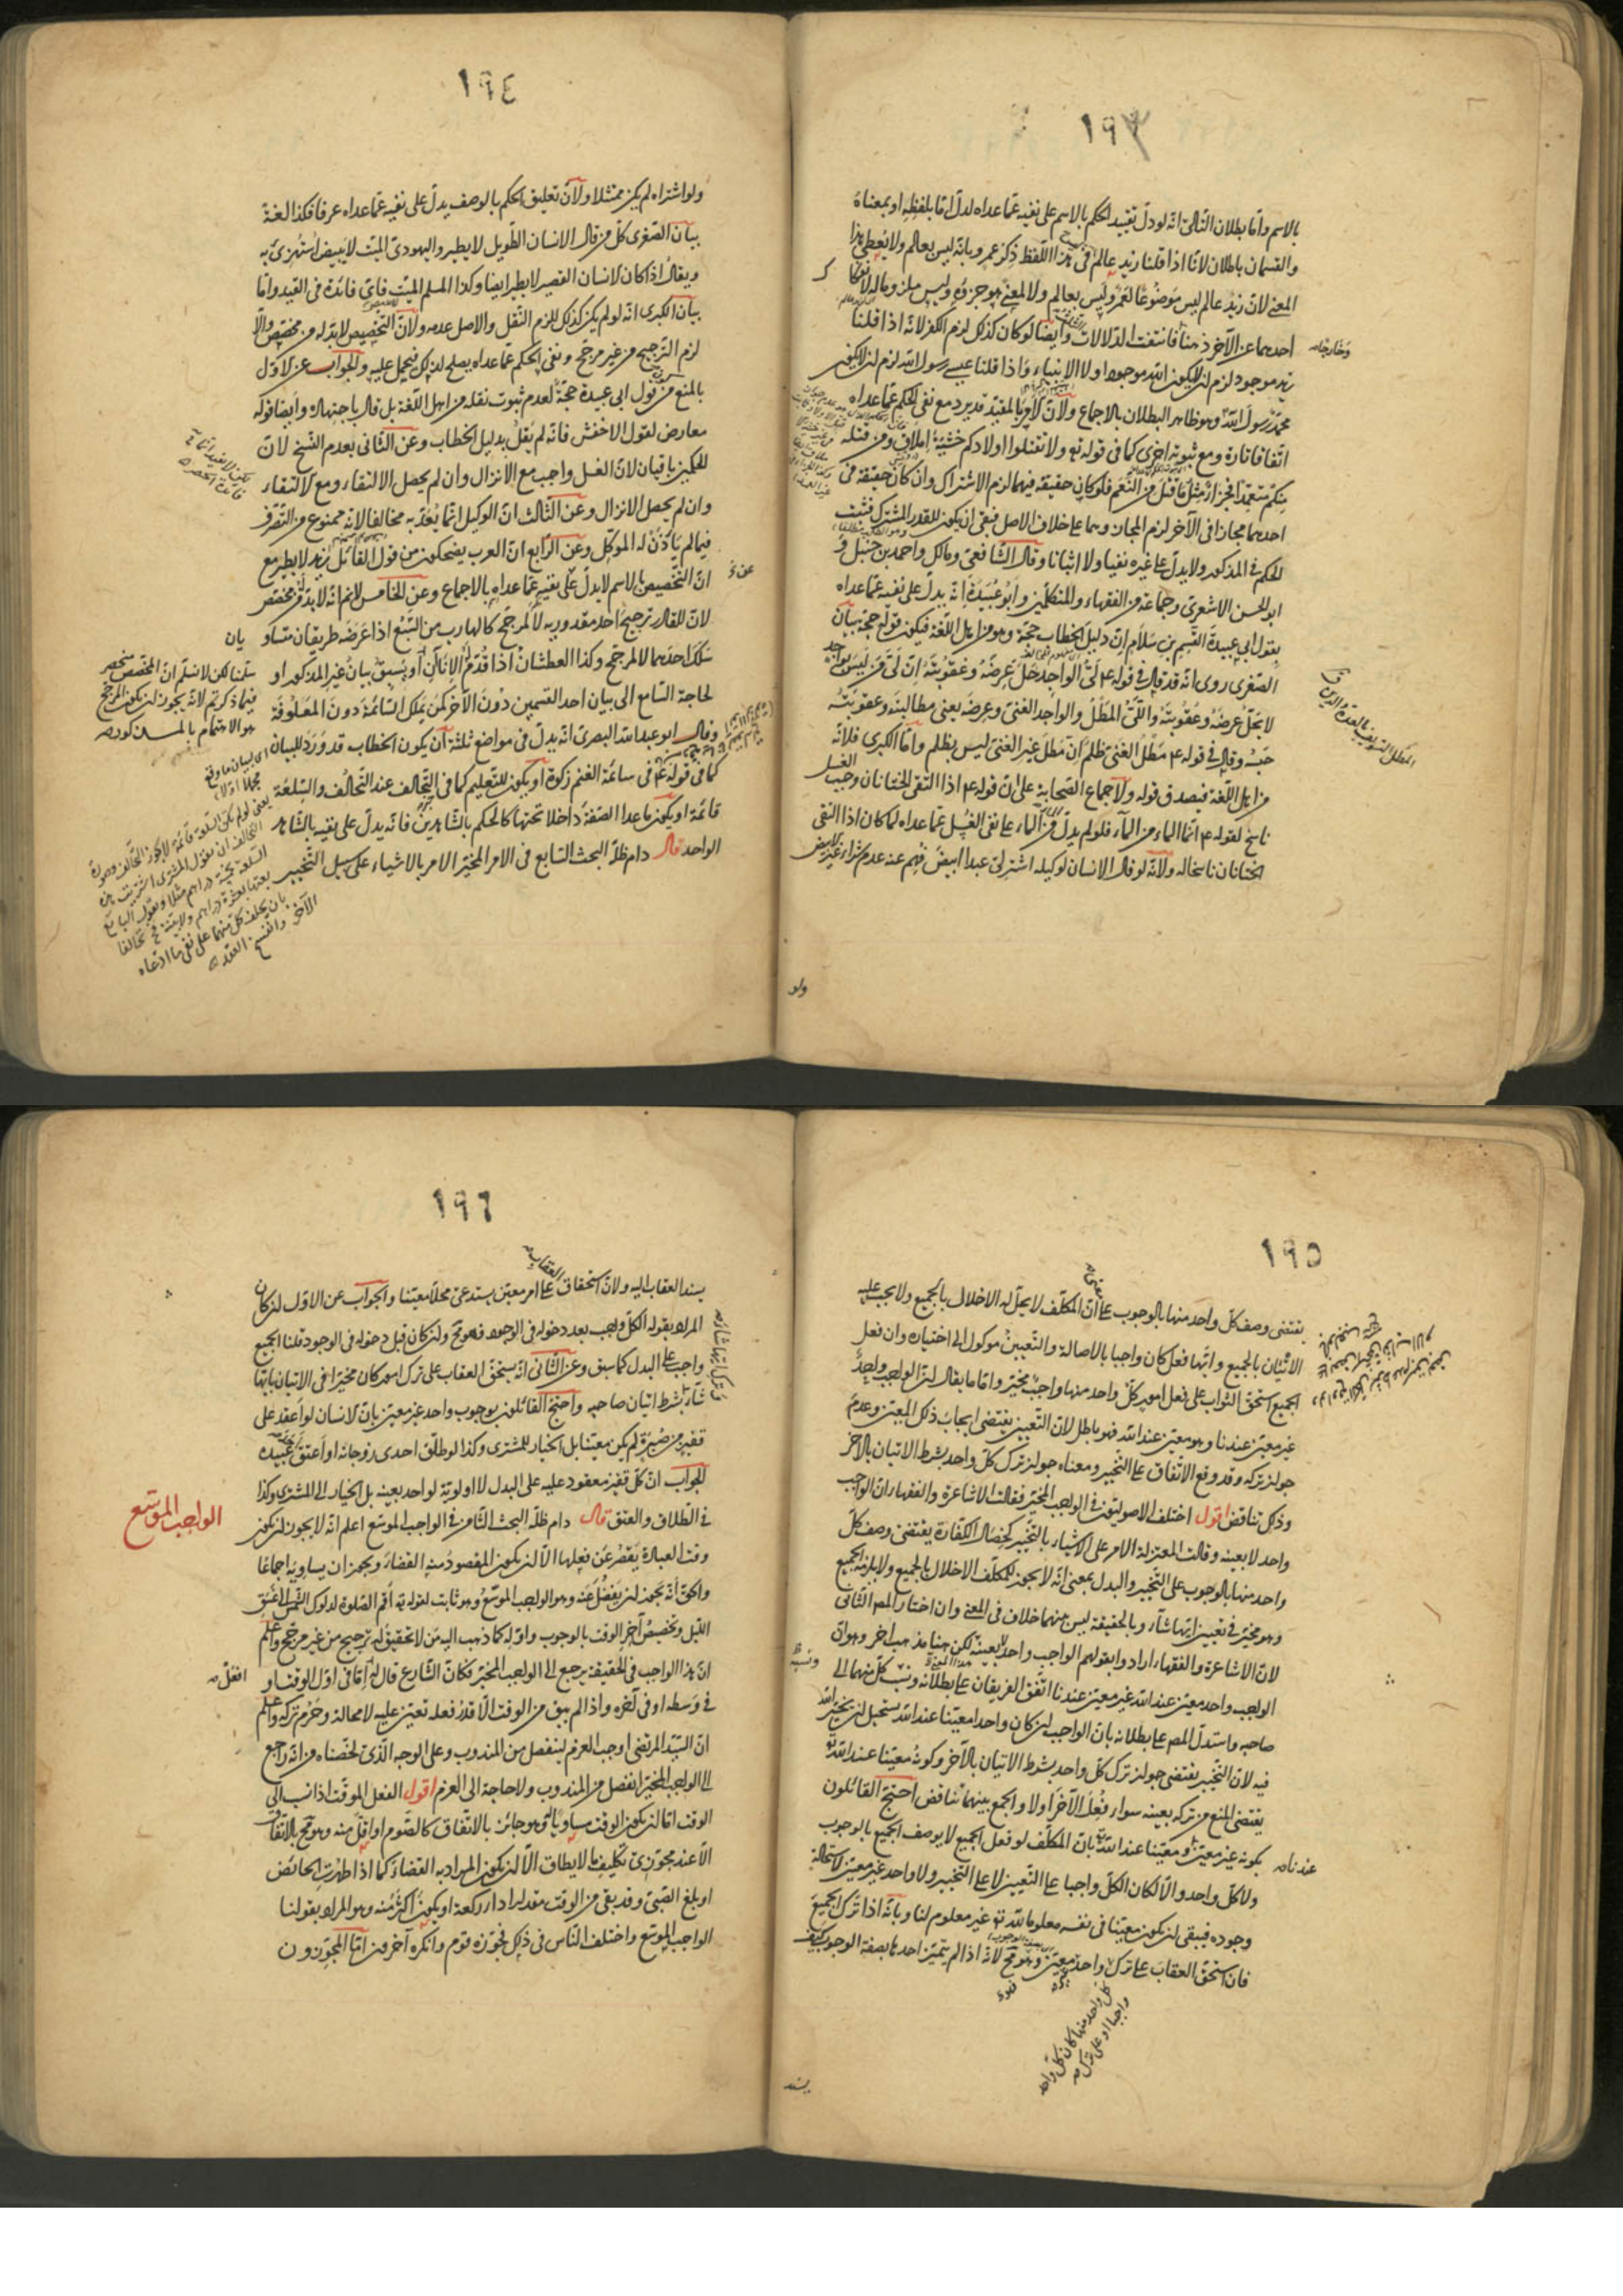 ١٩٣
بالاسم واما بطلان التالى انه لو دلّ تقييد الحكم بالاسم على نفيه عمّا عداه لدلّ امّا بلفظه او بمعناهُ
والقسمان باطلان لانّا اذا قلنا زيد عالمٌ فى هذا اللفظ ذكر عمرو بانّه ليس بعالم ولا يُعطى هذا
المعنى لانّ زيدٌ عالم ليس موضوعًا لعَمْرو ليس بعالم ولا المعنى هو جزؤه وليس ملزوما له
احدهما عن الآخر ذهنا فانتفت الدّلالات وايضًا لو كان كذلك لزم الكفر لانّه اذا قلنا
زيد موجود لزم ان لا يكون الله موجودا ولا الانبياء واذا قلنا عيسى رسول الله لزم ان لا يكون
محمدٌ رسولَ الله وهو ظاهر البطلان بالاجماع ولانّ الامر بالمقيّد قد يرد مع نفى الحكم عمّا عداه
اتفاقا تارة ومع ثبوته اخرى كما فى قوله تع ولا تقتلوا اولادكم خَشْيَةَ إملاقٍ ومن قتله
منكم متعمّدا فجزاءٌ مثلُ ما قتل من النَّعَم فلو كان حقيقة فيهما لزم الاشتراك وان كان حقيقة فى
احدهما مجازا فى الآخر لزم المجاز وهما على خلاف الاصل فبقى ان يكون للقدر المشترك فثبت
الحكم فى المذكور ولا يدلّ على غيره نفيا ولا اثباتا وقال الشافعىّ ومالك واحمد بن حنبل و
ابو الحسن الاشعرىّ وجماعة من الفقهاء والمتكلّمين وابو عُبَيْدة انّه يدلّ على نفيه عمّا عداه
بقول ابى عبيدة القسم بن سَلّام انّ دليل الخطاب حجّة وهو من اهل اللغة فيكون قوله حجة بيان
الصّغرى روى انّه قد قال فى قوله ع لَىُّ الواجد يُحلّ عِرضَهُ وعُقوبتَهُ انّ لىَّ مَن ليس بواجد
لا يُحلّ عرضَهُ وعُقوبتَهُ واللىُّ المَطْلُ والواجد الغنىّ وعِرضَه يعنى مطالبته وعقوبتَه
حَبْسُه وقال فى قوله ع مَطْلُ الغنىّ ظلمٌ انّ مَطْلَ غير الغنىّ ليس بظلم وامّا الكبرى فلانّه
من اهل اللّغة فيصدق قوله ولاجماع الصّحابة على انّ قوله ع اذا التقى الختانان وجب الغسل
ناسخ لقوله ع انّما الماء من الماء فلو لم يدلّ الماء من الماء على نفى الغسل عمّا عداه لما كان اذا التقى
الختانان ناسخا له ولانّه لو قال الانسان لوكيله اشترِ لى عبدا ابيضَ فُهم عنه عدم شراء غير الابيض
ولو
١٩٤
ولو اشتراه لم يكن ممتثلا ولانّ تعليق الحكم بالوصف يدلّ على نفيه عمّا عداه عرفا فكذا لغةً
بيان الصّغرى كلّ من قال الانسان الطّويل لا يطير واليهودىّ الميّت لا يبيض استُهزئ به
ويقال اذا كان الانسان القصير لا يطير ايضا وكذا المسلم الميّت فاىّ فائدة فى القيد وامّا
بيان الكبرى انّه لو لم يكن كذلك للزم النّقل والاصل عدمه ولانّ التخصيص لا بدّ له من مخصّص والّا
لزم التّرجيح من غير مرجّح ونفى الحكم عمّا عداه يصلح لذلك فيحمل عليه والجواب عن الاوّل
بالمنع من قول ابى عبيدة حجّةً لعدم ثبوت نقله من اهل اللّغة بل قال باجتهاده وايضا قوله
معارض لقول الاخفش فانّه لم يقل بدليل الخطاب وعن الثّانى بعدم النّسخ لانّ
الحكمين باقيان لانّ الغسل واجب مع الانزال وان لم يحصل الالتقاء ومع الالتقاء
وان لم يحصل الانزال وعن الثّالث انّ الوكيل انّما يُعَدّ به مخالفا لانّه ممنوع من التّصرّف
فيما لم يأذن له الموكّل وعن الرّابع انّ العرب يضحكون من قول القائل زيد لا يطير مع
انّ التّخصيص بالاسم لا يدلّ على نفيه عمّا عداه بالاجماع وعن الخامس لانم انّه لا بدّ من مخصّص
لانّ للقادر ترجيحَ احد مقدوريه لا لمرجّح كالهارب من السّبُع اذا عَرَضَه طريقان متساو يان
سَلَكَ احدهما لا لمرجّح وكذا العطشانُ اذا قُدّمَ الانَاآن او يُسبقُ بيانُ غير المذكور او
لحاجة السّامع الى بيان احد القسمين دون الآخر كمَن يملك السّائمة دون المعلوفة
وقال ابو عبد الله البصرىّ انّه يدلّ فى مواضع ثلثة أن يكون الخطاب قد وَرَدَ للبيان
كما فى قوله ع فى سائمة الغنم زكوة او يكون للتعليم كما فى التّحالف عند التّخالف والسّلعة
قائمة او يكون ما عدا الصّفة داخلا تحتها كالحكم بالشّاهدين فانّه يدلّ على نفيه بالشّاهد
الواحد قال دام ظلّه البحث السّابع فى الامر المخيّر الامر بالاشياء على سبيل التّخيير
١٩٥
يقتضى وصف كلّ واحد منها بالوجوب على انّ المكلّف لا يحلّ له الاخلال بالجميع ولا يجب عليه
الاتيان بالجميع وايّها فعل كان واجبا بالاصالة والتّعيين موكول الى اختياره وان فعل
الجميع استحقّ الثّواب على فعل امور كلّ واحد منها واجبٌ مخيّر وامّا ما يقال انّ الواجب واحدٌ
غير معيّن عندنا وهو معيّن عند الله فهو باطل لانّ التّعيين يقتضى ايجابَ ذلك المعيّن وعدم
جواز تركه وقد وقع الاتّفاق على التّخيير ومعناه جواز ترك كلّ واحد بشرط الاتيان بالآخر
وذلك تناقض اقول اختلف الاصوليّون فى الواجب المخيّر فقالت الاشاعرة والفقهاء انّ الواجب
واحد لا بعينه وقالت المعتزلة الامر على الاشياء بالتّخيير كخصال الكفّارة يقتضى وصف كلّ
واحد منها بالوجوب على التّخيير والبدل بمعنى انّه لا يجوز للمكلّف الاخلال بالجميع ولا يلزمه الجميع
وهو مخيّر فى تعيين ايّها شاء وبالحقيقة ليس بينهما خلاف فى المعنى وان اختار المص الثّانى
لانّ الاشاعرة والفقهاء ارادوا بقولهم الواجب واحد لا بعينه لكن هنا مذهب اخر وهو انّ
الواجب واحد معيّن عند الله غير معيّن عندنا اتّفق الفريقان على بطلانه ونسب كلّ منهما الى
صاحبه واستدلّ المص على بطلانه بانّ الواجب ان كان واحدا معيّنا عند الله يستحيل ان يخيّر الله
فيه لانّ التّخيير يقتضى جواز ترك كلّ واحد بشرط الاتيان بالآخر وكونُه معيّنا عند الله تع
يقتضى المنع من تركه بعينه سواء فُعِلَ الآخر او لا والجمع بينهما تناقض احتجّ القائلون
بكونه غير معيّن ومعيّنا عند الله تع بانّ المكلّف لو فعل الجميع لا يوصف الجميع بالوجوب
ولا كلّ واحد والّا لكان الكلّ واجبا على التّعيين لا على التّخيير ولا واحد غير معيّن لاستحالة
وجوده فيبقى ان يكون معيّنا فى نفسه معلوما لله تع غير معلوم لنا وبانّه اذا ترك الجميعَ
فان استحقّ العقاب على ترك واحد معيّن وهو مح لانّه اذا لم يتميّز احدها بصفة الوجوب كيف
يسند
١٩٦
يسند العقاب اليه ولانّ استحقاق العقاب على امر معيّن يستدعى محلّا معيّنا والجواب عن الاوّل ان كان
المراد بقوله الكلّ واجب بعد دخوله فى الوجود فهو مح وان كان قبل دخوله فى الوجود قلنا الجميع
واجب على البدل كما سبق وعن الثّانى انّه يستحقّ العقاب على ترك امور كان مخيّرا فى الاتيان بايّها
شاء بشرط اتيان صاحبه واحتجّ القائلون بوجوب واحد غير معيّن بانّ الانسان لو عقد على
قفيز من صُبرة لم يكن معيّنا بل الخيار للمشترى وكذا لو طلّق احدى زوجاته او اعتق عَبيده
الجواب انّ كلّ قفيز معقود عليه على البدل لا اولويّة لواحد بعينه بل الخيار الى المشترى وكذا
فى الطّلاق والعتق قال دام ظلّه البحث الثّامن فى الواجب الموسّع اعلم انّه لا يجوز ان يكون
وقت العبادة يَقصُر عن فعلها الّا ان يكون المقصود منه القضاءَ ويجوز ان يساويه اجماعًا
والحقّ انّه يجوز ان يَفضُلَ عنه وهو الواجب الموسّع وهو ثابت لقوله تع أقم الصّلوة لدلوك الشّمس الى غسق
اللّيل وتخصيصُ آخرِ الوقت بالوجوب واوّله كما ذهب اليه من لا تحقيق له ترجيح من غير مرجّح واعلم
انّ هذا الواجب فى الحقيقة يرجع الى الواجب المخيّر فكأنّ الشّارع قال له امّا فى اوّل الوقت او
فى وَسطه او فى آخره واذا لم يبق من الوقت الّا قدرُ فعله تعيّن عليه لا محالة وحَرُم تركه واعلم
انّ السّيّد المرتضى اوجب العزم لينفصل من المندوب وعلى الوجه الّذى لخّصناه من انّه راجع
الى الواجب المخيّر انفصل من المندوب ولا حاجة الى العزم اقول الفعل الموقّت اذا نسب الى
الوقت امّا ان يكون الوقت مساويا له وهو جائز بالاتّفاق كالصّوم او اقلّ منه وهو مح بالاتّفاق
الّا عند مجوّزى تكليف ما لا يطاق الّا ان يكون المراد به القضاءَ كما اذا طهرت الحائض
او بلغ الصّبىّ وقد بقى من الوقت مقدار اداء ركعة او يكون اكثر منه وهو المراد بقولنا
الواجب الموسّع واختلف النّاس فى ذلك فجوّزه قوم وانكره آخرون امّا المجوّزون
الواجب الموسّع